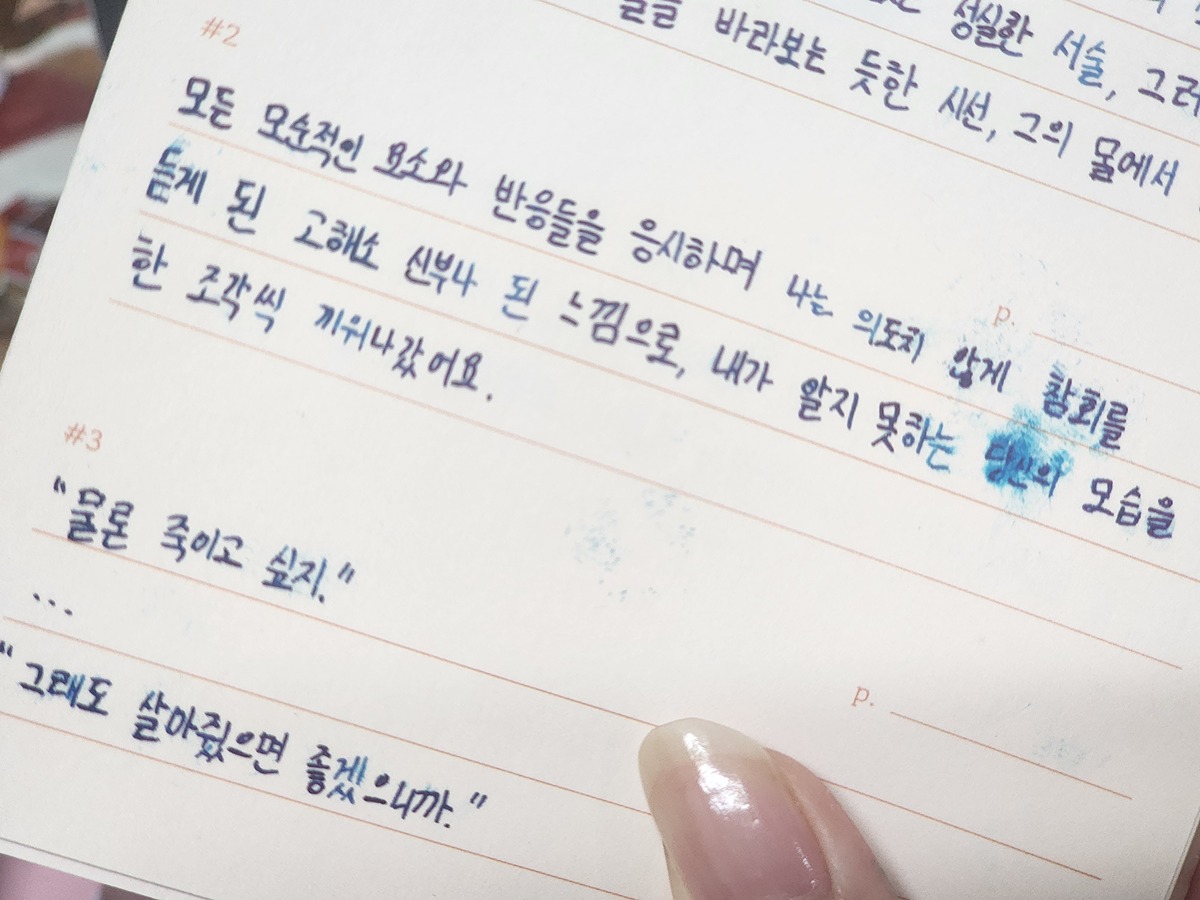 성실한 서술, 그러
들을 바라보는 듯한 시선, 그의 물에서
#2
모든 모순적인 요소와 반응들을 응시하며 나는 의도치 않게 참회를
듣게 된 고해소 신부나 된 느낌으로, 내가 알지 못하는 당신의 모습을
한 조각씩 끼워나갔어요.
p.
#3
"물론 죽이고 싶지."
...
"그래도 살아줬으면 좋겠으니까."
p.